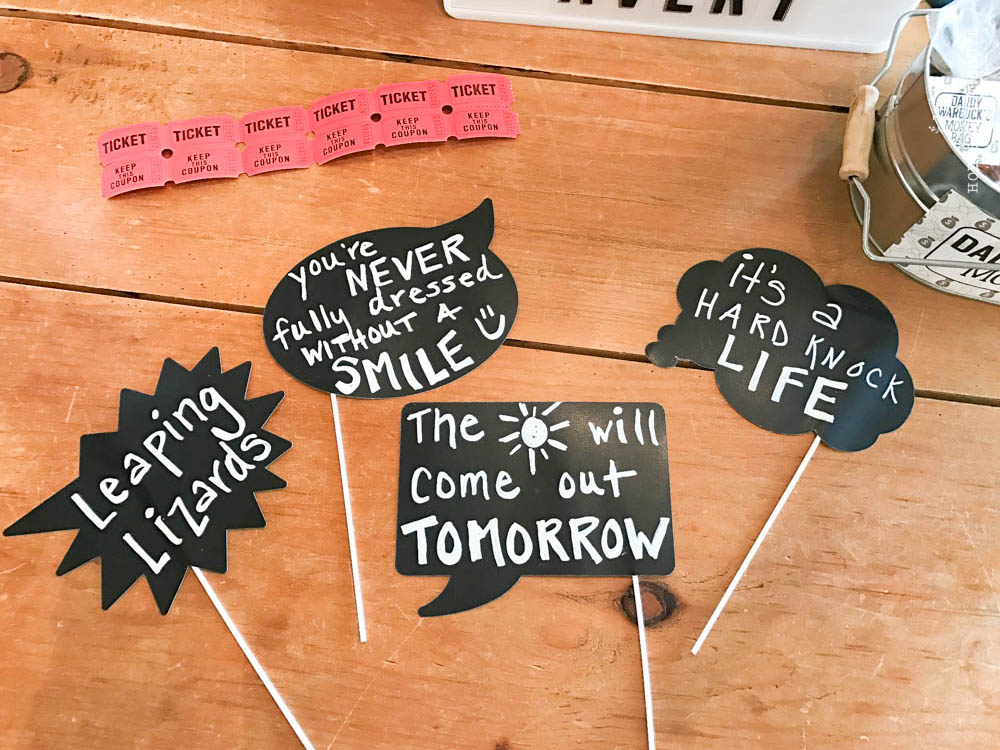 AVERY
TICKET TICKET TICKET TICKET TICKET TICKET
KEEP THIS COUPON
KEEP THIS COUPON
KEEP THIS COUPON
KEEP THIS COUPON
KEEP THIS COUPON
KEEP THIS COUPON
DADDY
WARBUCK'S
MONEY
BAG
you're
NEVER
fully dressed
WITHOUT A
SMILE
it's a
HARD KNOCK
LIFE
Leaping
Lizards
The will
come out
TOMORROW